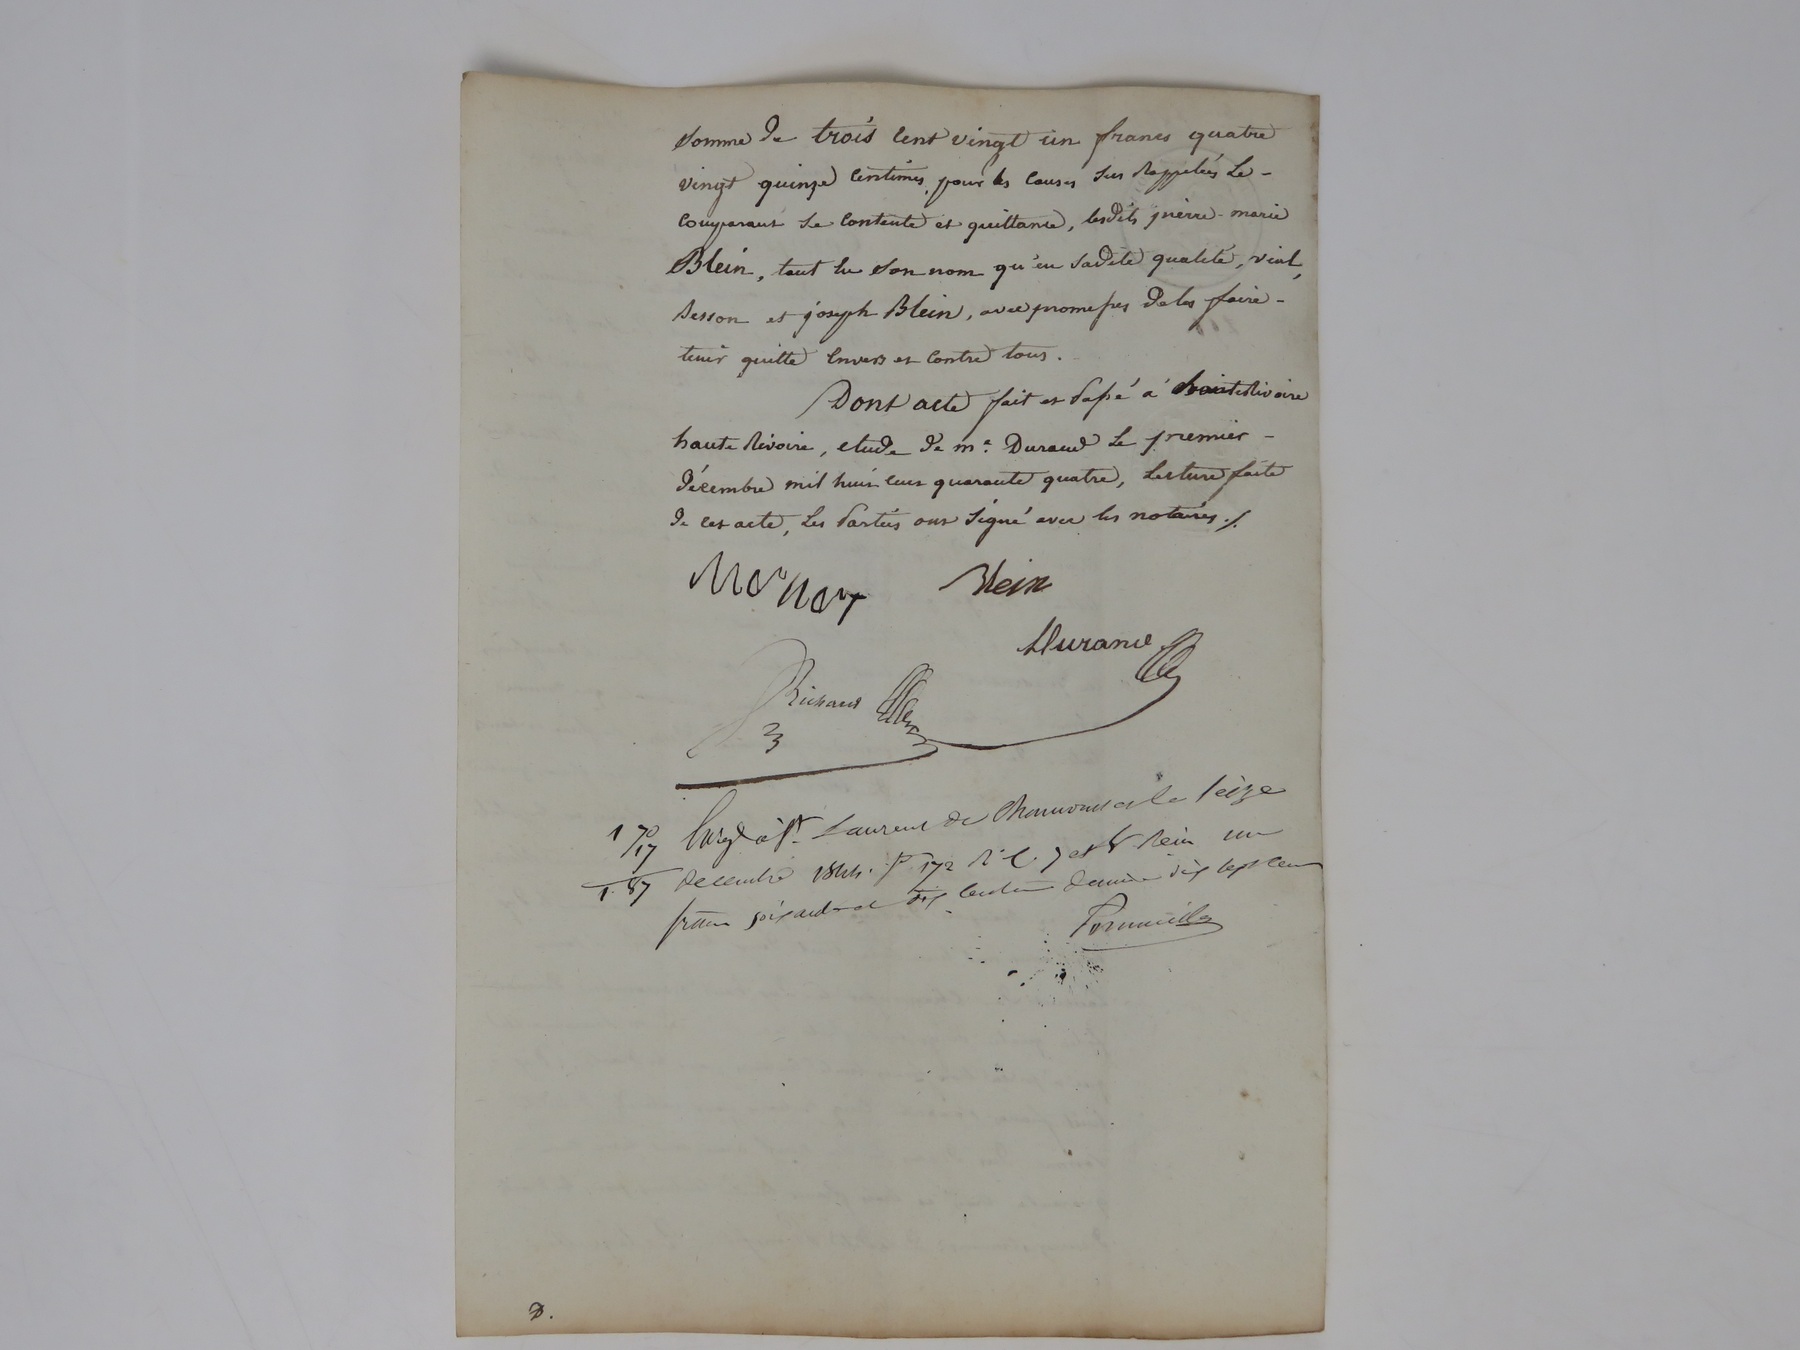 somme de trois cent vingt un francs quatre
vingt quinze centimes, pour les causes sus rappelées Le -
comparant se contente et quittance, lesdits pierre-marie
Blein, tant en son nom qu'en sadite qualité, vial,
besson et joseph Blein, avec promesses de les faire -
tenir quitte envers et contre tous.
Dont acte fait et passé à
haute Rivoire, etude de me. Durand Le premier -
décembre mil huit cent quarante quatre, Lecture faite
de cet acte, Les Parties ont signé avec les notaires ./.
Blein
Durand
Richard
1 70
17
1. 87
Enregé à St. Laurent de Chamousset le seize
decembre 1844. f° 172 R° C. 7 et 8 Reçu un
franc soixante et dix centimes decime dix sept cent
D.